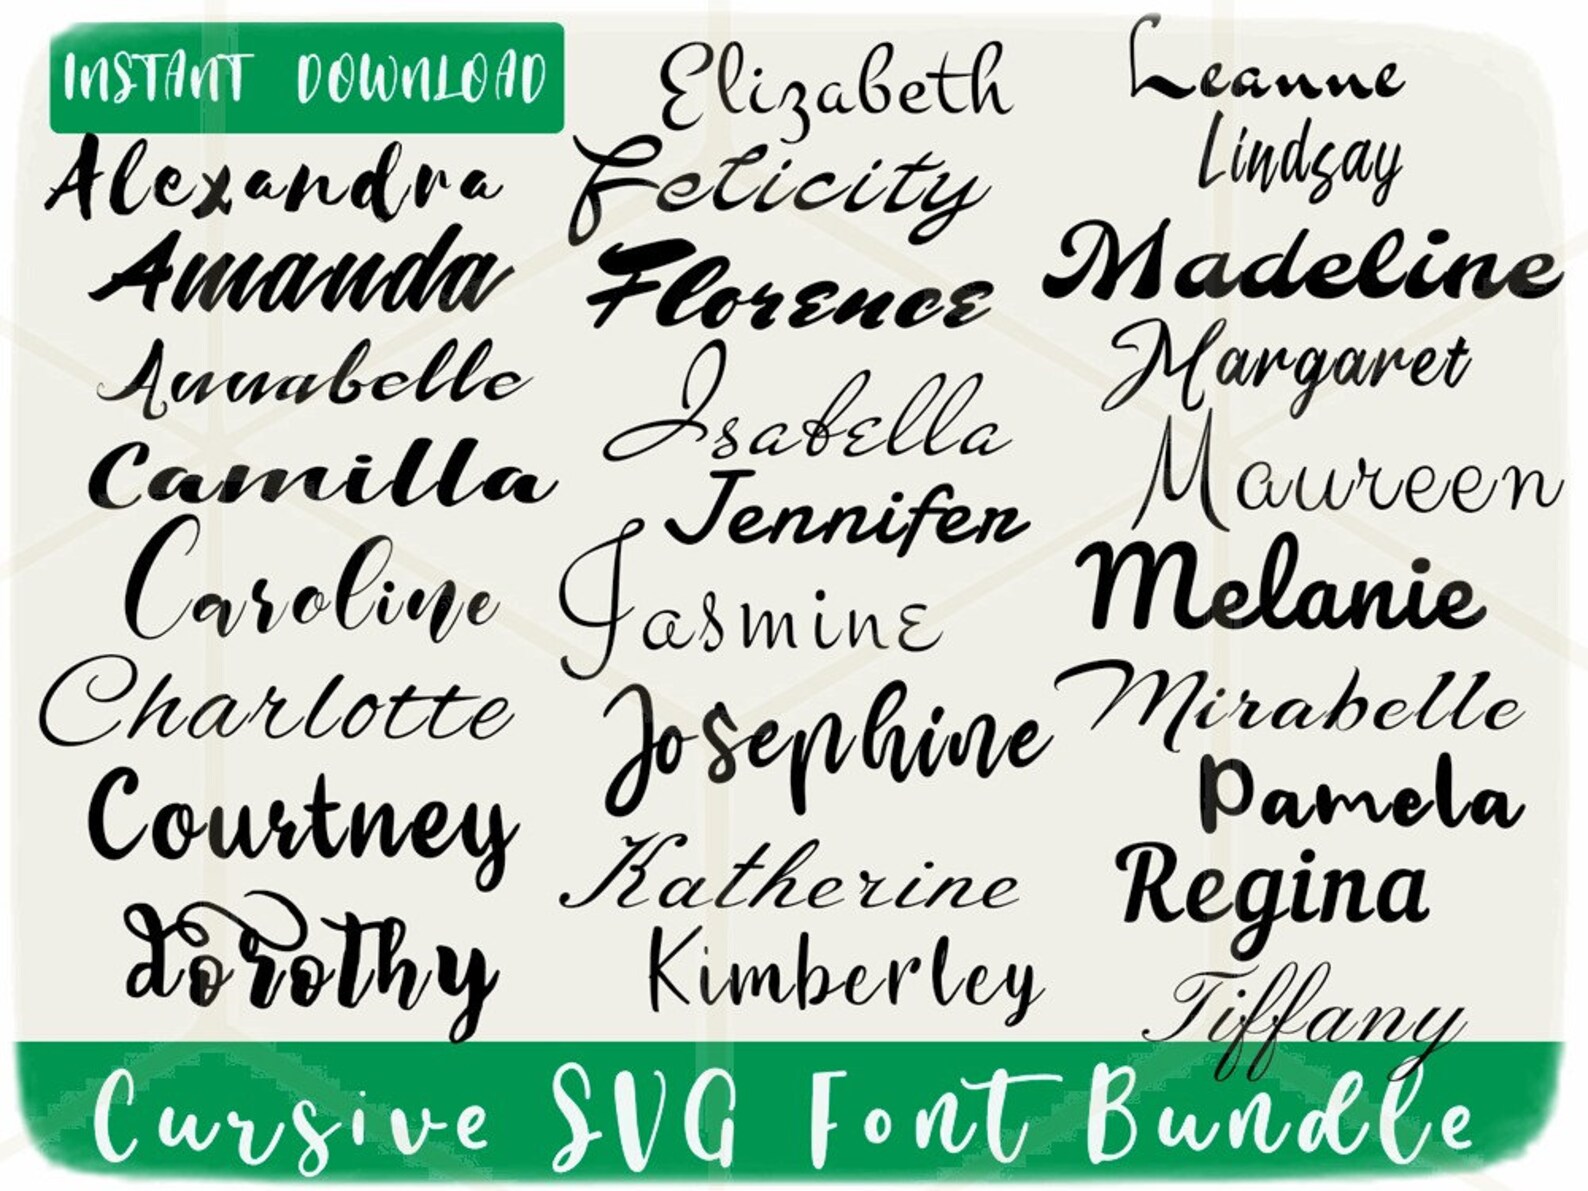 INSTANT DOWNLOAD
Alexandra
Amanda
Annabelle
Camilla
Caroline
Charlotte
Courtney
dorothy
Elizabeth
Felicity
Florence
Isabella
Jennifer
Jasmine
Josephine
Katherine
Kimberley
Leanne
Lindsay
Madeline
Margaret
Maureen
Melanie
Mirabelle
Pamela
Regina
Tiffany
Cursive SVG Font Bundle